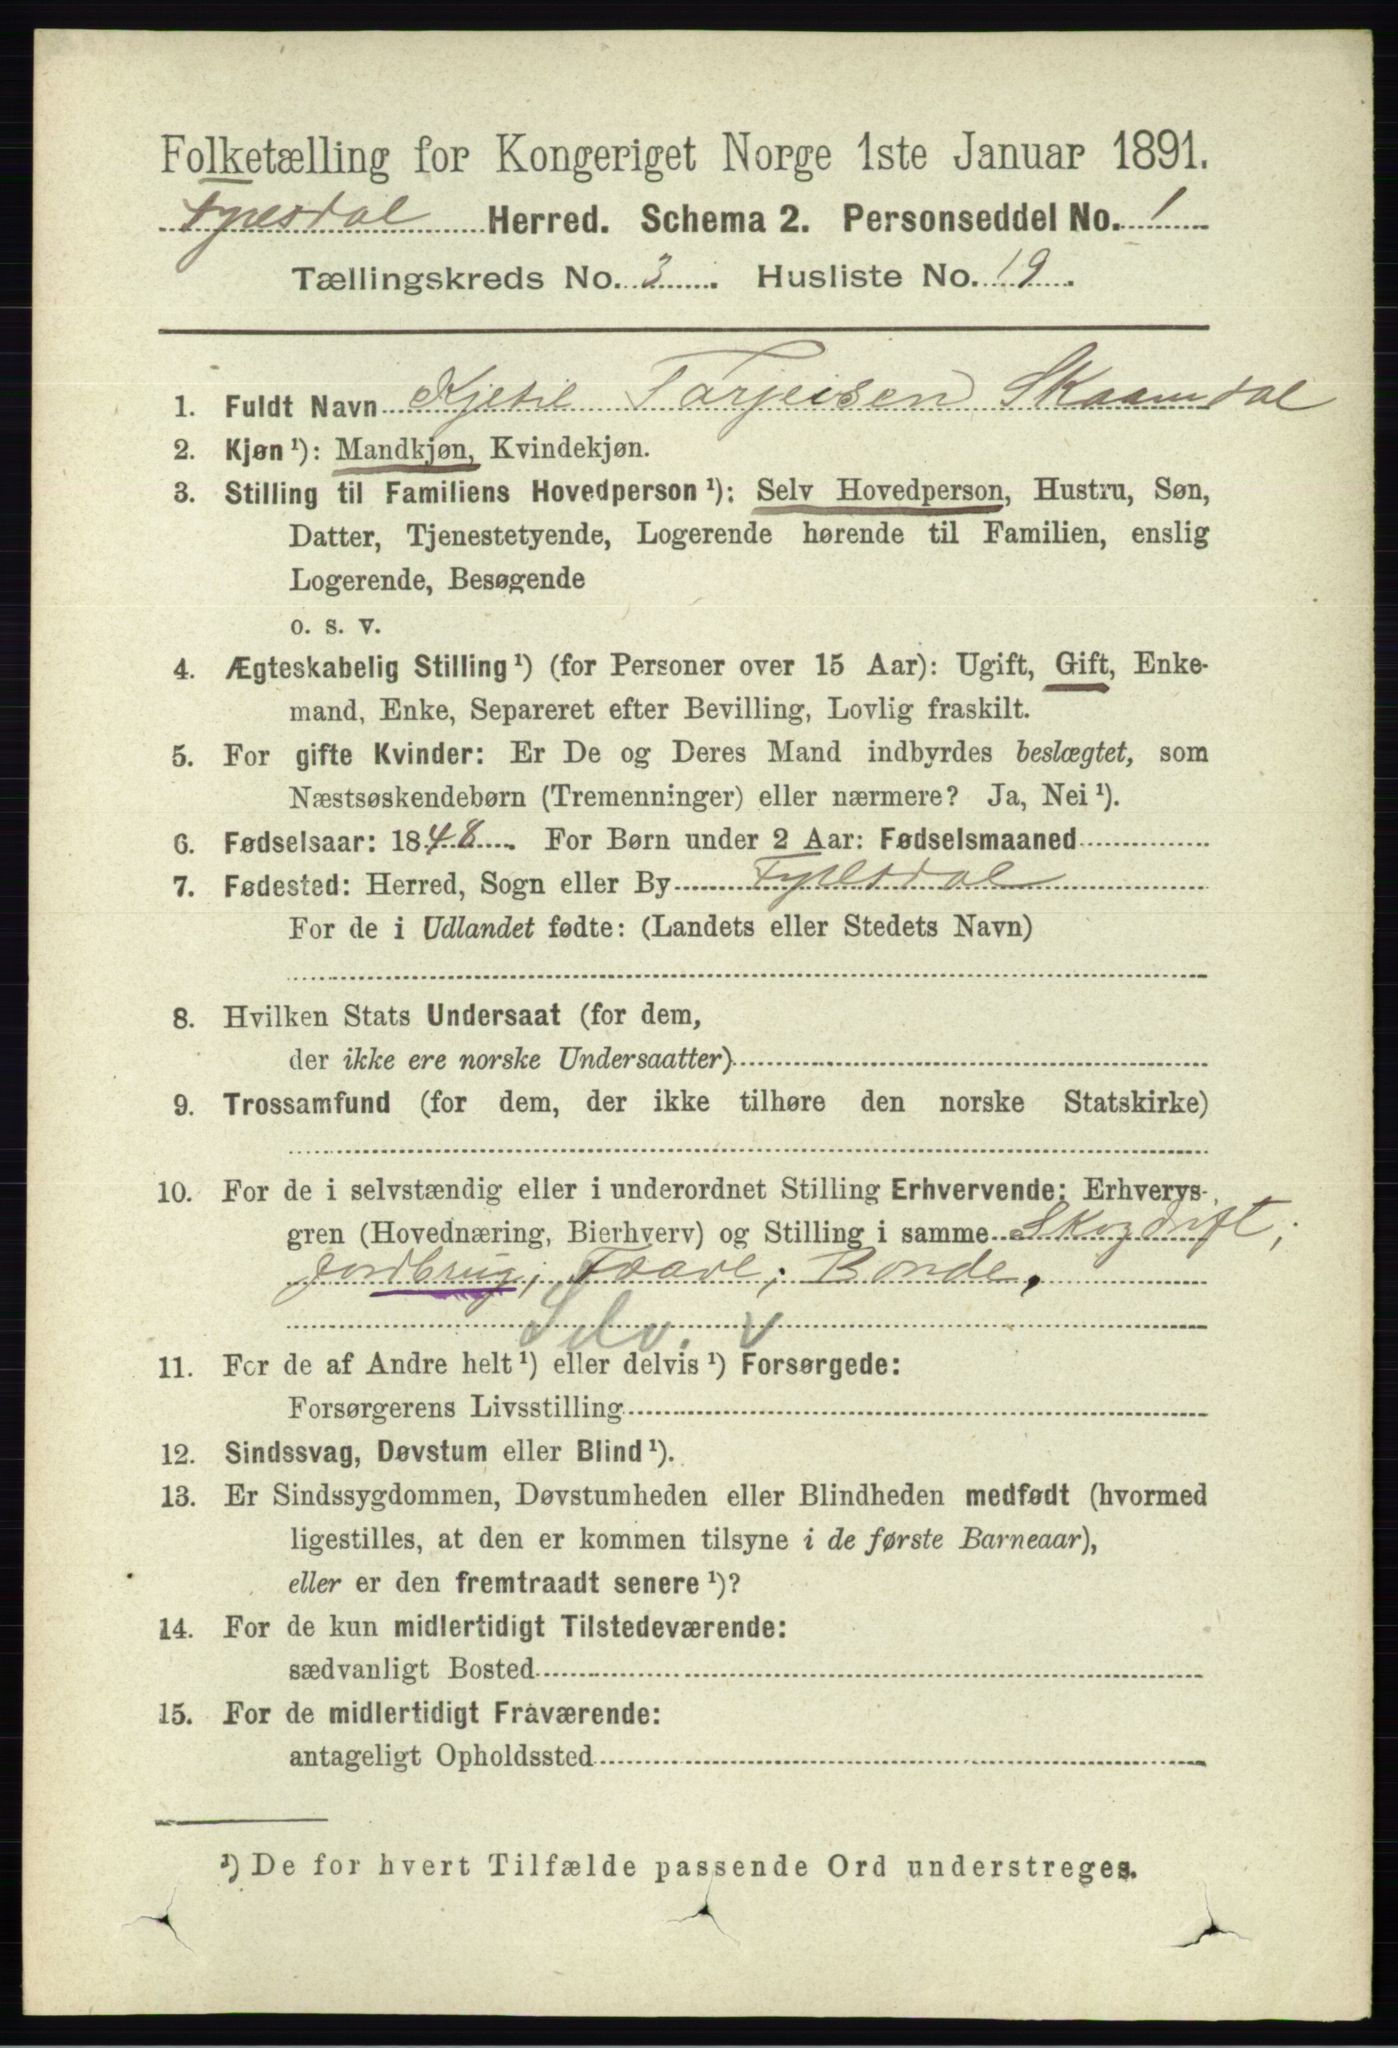 Folketælling for Kongeriget Norge 1ste Januar 1891.
Fyresdal Herred. Schema 2. Personseddel No. 1
Tællingskreds No. 3. Husliste No. 19.
1. Fuldt Navn Kjetil Tarjeisen Skaamdal
2. Kjøn ¹): Mandkjøn, Kvindekjøn.
3. Stilling til Familiens Hovedperson ¹): Selv Hovedperson, Hustru, Søn,
Datter, Tjenestetyende, Logerende hørende til Familien, enslig
Logerende, Besøgende
o. s. v.
4. Ægteskabelig Stilling ¹) (for Personer over 15 Aar): Ugift, Gift, Enke-
mand, Enke, Separeret efter Bevilling, Lovlig fraskilt.
5. For gifte Kvinder: Er De og Deres Mand indbyrdes beslægtet, som
Næstsøskendebørn (Tremenninger) eller nærmere? Ja, Nei ¹).
6. Fødselsaar: 1848. For Børn under 2 Aar: Fødselsmaaned
7. Fødested: Herred, Sogn eller By Fyresdal
For de i Udlandet fødte: (Landets eller Stedets Navn)
8. Hvilken Stats Undersaat (for dem,
der ikke ere norske Undersaatter)
9. Trossamfund (for dem, der ikke tilhøre den norske Statskirke)
10. For de i selvstændig eller i underordnet Stilling Erhvervende: Erhvervs-
gren (Hovednæring, Bierhverv) og Stilling i samme Skogdrift;
Jordbrug; Bonde.
Selv. v
11. For de af Andre helt ¹) eller delvis ¹) Forsørgede:
Forsørgerens Livsstilling
12. Sindssvag, Døvstum eller Blind ¹).
13. Er Sindssygdommen, Døvstumheden eller Blindheden medfødt (hvormed
ligestilles, at den er kommen tilsyne i de første Barneaar),
eller er den fremtraadt senere ¹)?
14. For de kun midlertidigt Tilstedeværende:
sædvanligt Bosted
15. For de midlertidigt Fraværende:
antageligt Opholdssted
¹) De for hvert Tilfælde passende Ord understreges.